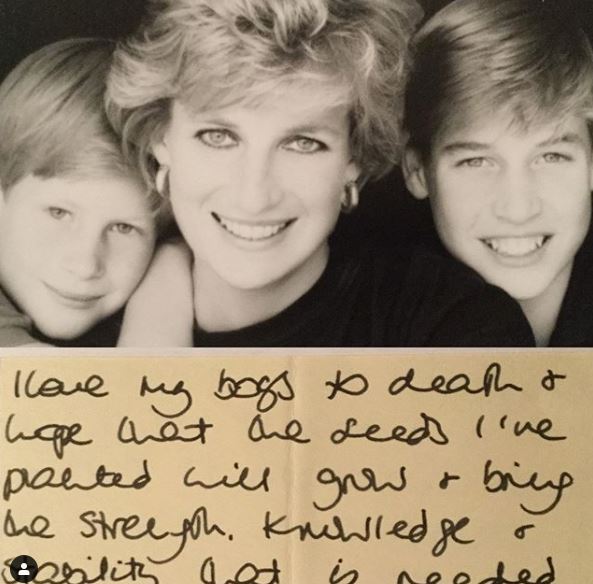 I love my boys to death &
hope that the seeds I've
planted will grow & bring
the strength, knowledge &
stability that is needed